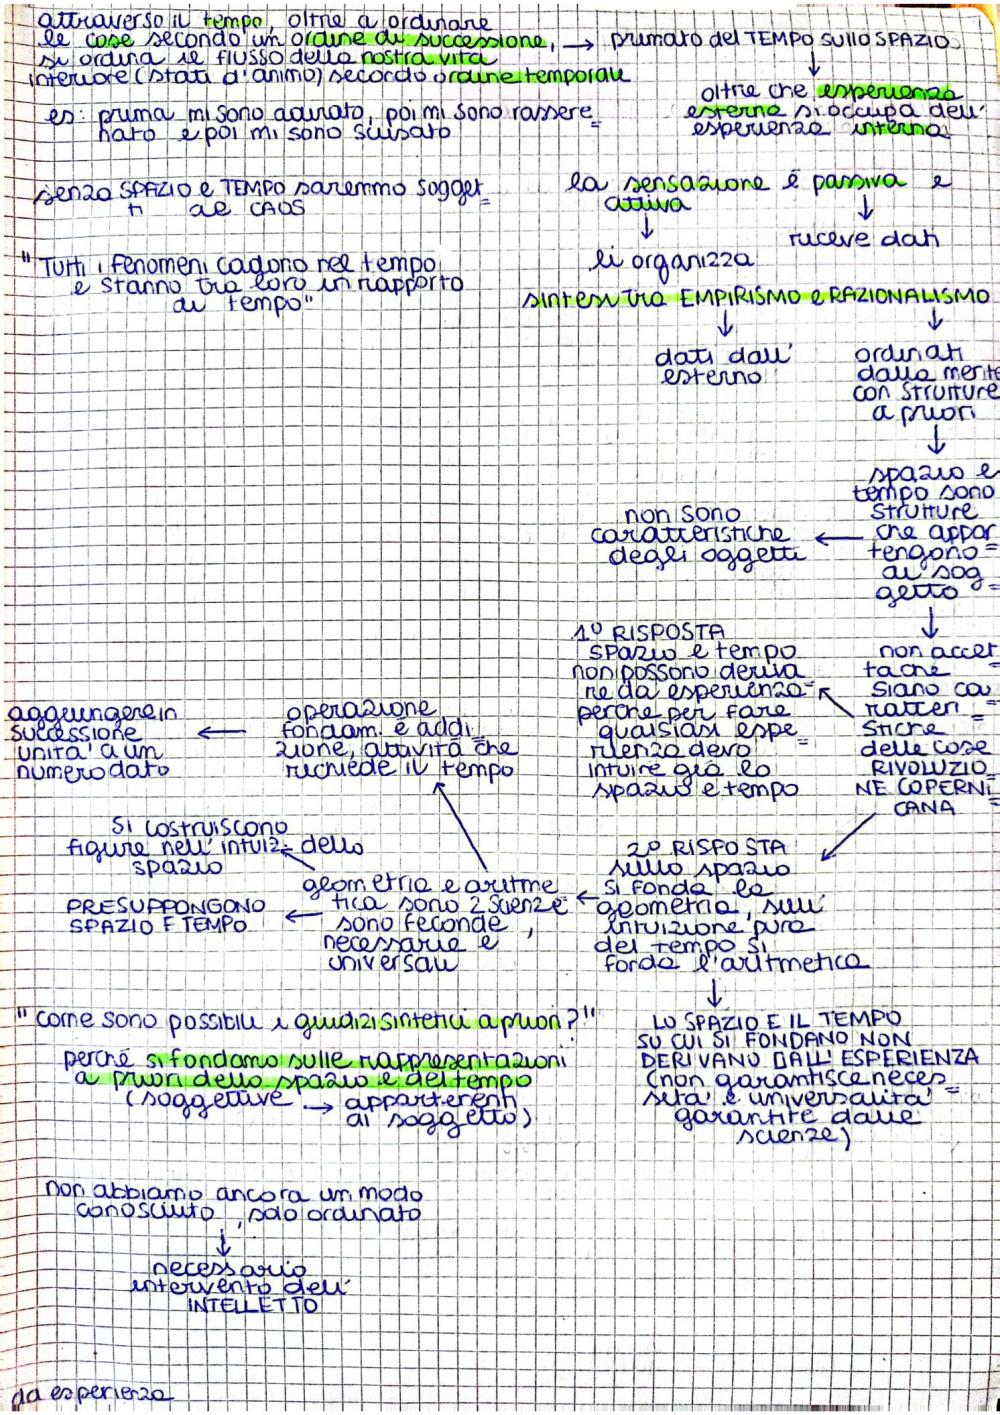 attraverso il tempo, oltre a ordinare
le cose secondo un ordine di successione, → primato del TEMPO SULLO SPAZIO
si ordina il flusso della nostra vita
interiore (stati d'animo) secondo ordine temporale
oltre che esperienza
esterna si occupa dell'
esperienza interna
es: prima mi sono adirato, poi mi sono rassere=
nato e poi mi sono scusato
senza SPAZIO e TEMPO saremmo sogget=
ti al CAOS
la sensazione é passiva e
attiva
riceve dati
li organizza
"Tutti i fenomeni cadono nel tempo
e stanno tra loro in rapporto
di tempo"
sintesi tra EMPIRISMO e RAZIONALISMO
dati dall'
esterno
ordinati
dalla mente
con strutture
a priori
spazio e
tempo sono
strutture
che appar=
tengono
al sog=
getto
non sono
caratteristiche
degli oggetti
non accet=
ta che
siano ca=
ratteri=
stiche
delle cose
RIVOLUZIO=
NE COPERNI=
CANA
1º RISPOSTA
spazio e tempo
non possono deriva=
re da esperienza
perché per fare
qualsiasi espe=
rienza devo
intuire già lo
spazio e tempo
operazione
fondam. é addi=
zione, attività che
richiede il tempo
aggiungere in
successione
unità a un
numero dato
2º RISPOSTA
sullo spazio
si fonda la
geometria, sull'
intuizione pura
del tempo si
fonda l'aritmetica
si costruiscono
figure nell'intuiz. dello
spazio
geometria e aritme=
tica sono 2 scienze
sono feconde,
necessarie e
universali
PRESUPPONGONO
SPAZIO E TEMPO
LO SPAZIO E IL TEMPO
SU CUI SI FONDANO NON
DERIVANO DALL'ESPERIENZA
(non garantisce neces=
sità e universalità
garantite dalle
scienze)
"Come sono possibili i giudizi sintetici a priori?"
perché si fondano sulle rappresentazioni
a priori dello spazio e del tempo
(soggettive → appartenenti
al soggetto)
non abbiamo ancora un modo
conosciuto, solo ordinato
necessario
intervento dell'
INTELLETTO
da esperienza